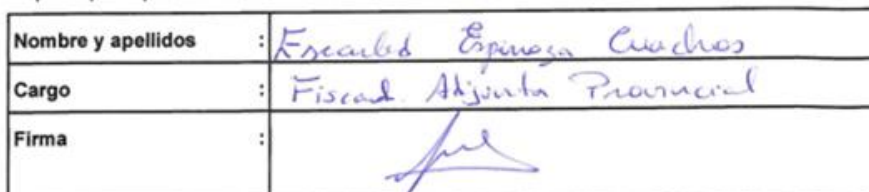 Nombre y apellidos : Espinoza Cuadros
Cargo : Fiscal Adjunta Provincial
Firma :